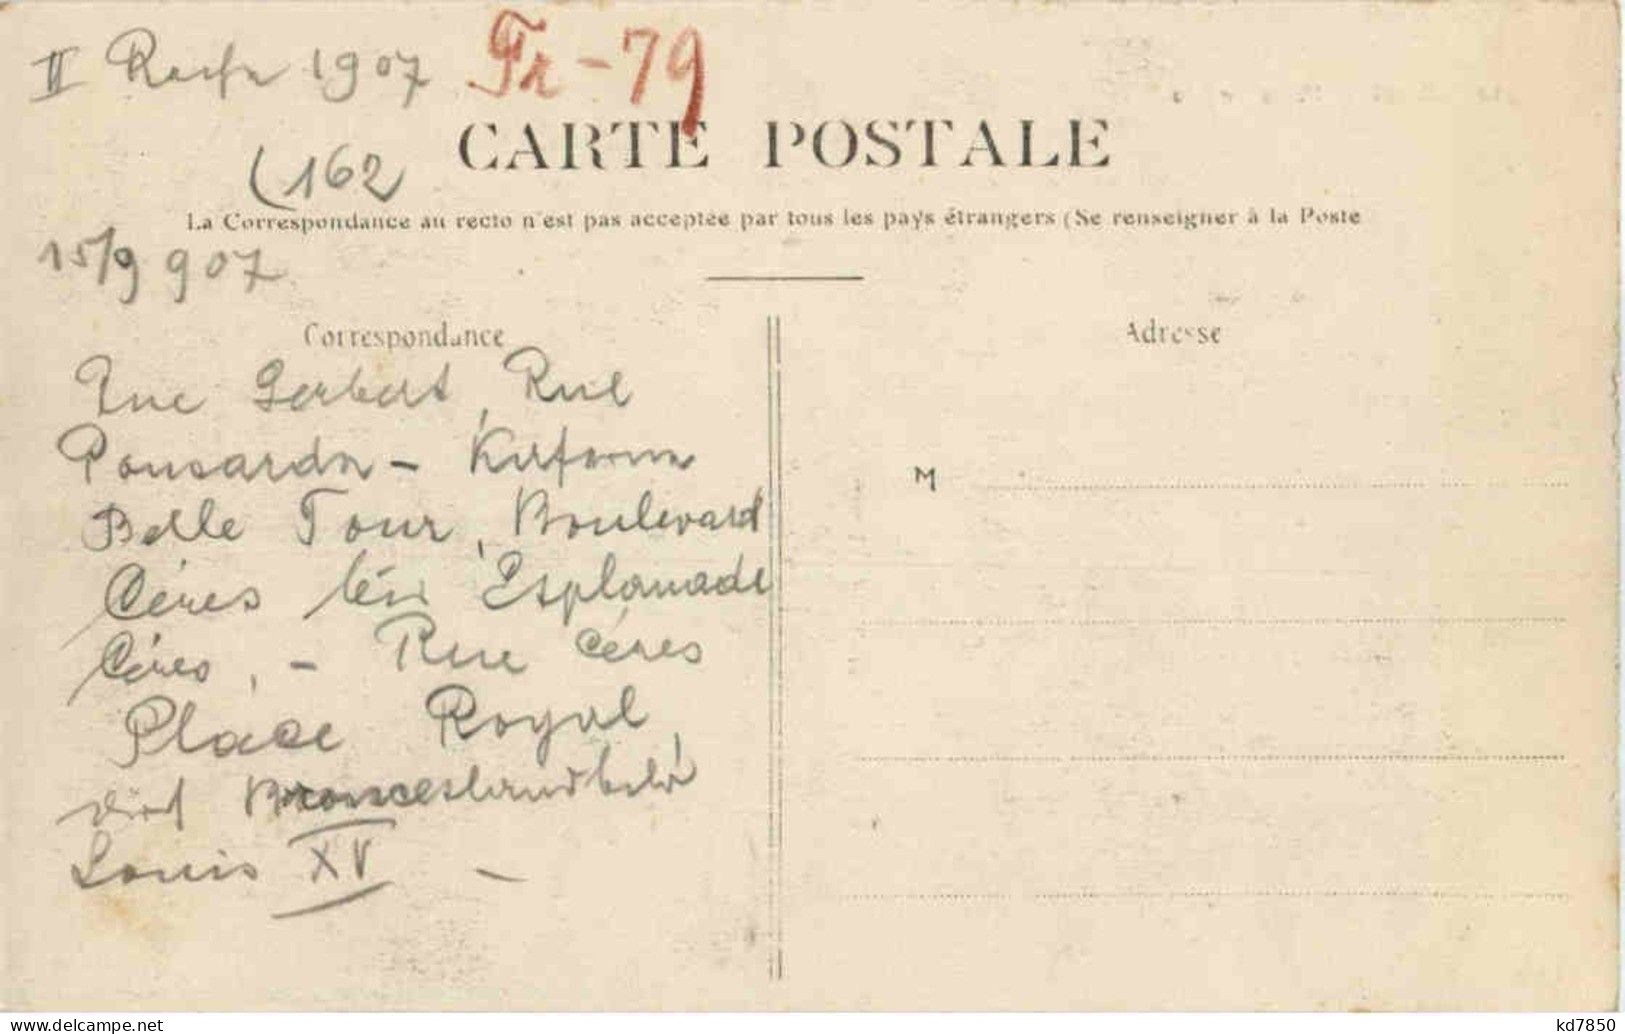 II 1907 Fr-79
(162
CARTE POSTALE
La Correspondance au recto n'est pas acceptée par tous les pays étrangers (Se renseigner à la Poste
15/9 907
Correspondance
Adresse
Rue Gerbert, Rue
Ponsardin -
M
Belle Tour, Boulevard
Cérès Esplanade
Cérès, - Rue Cérès
Place Royal,
Louis XV -
kd7850